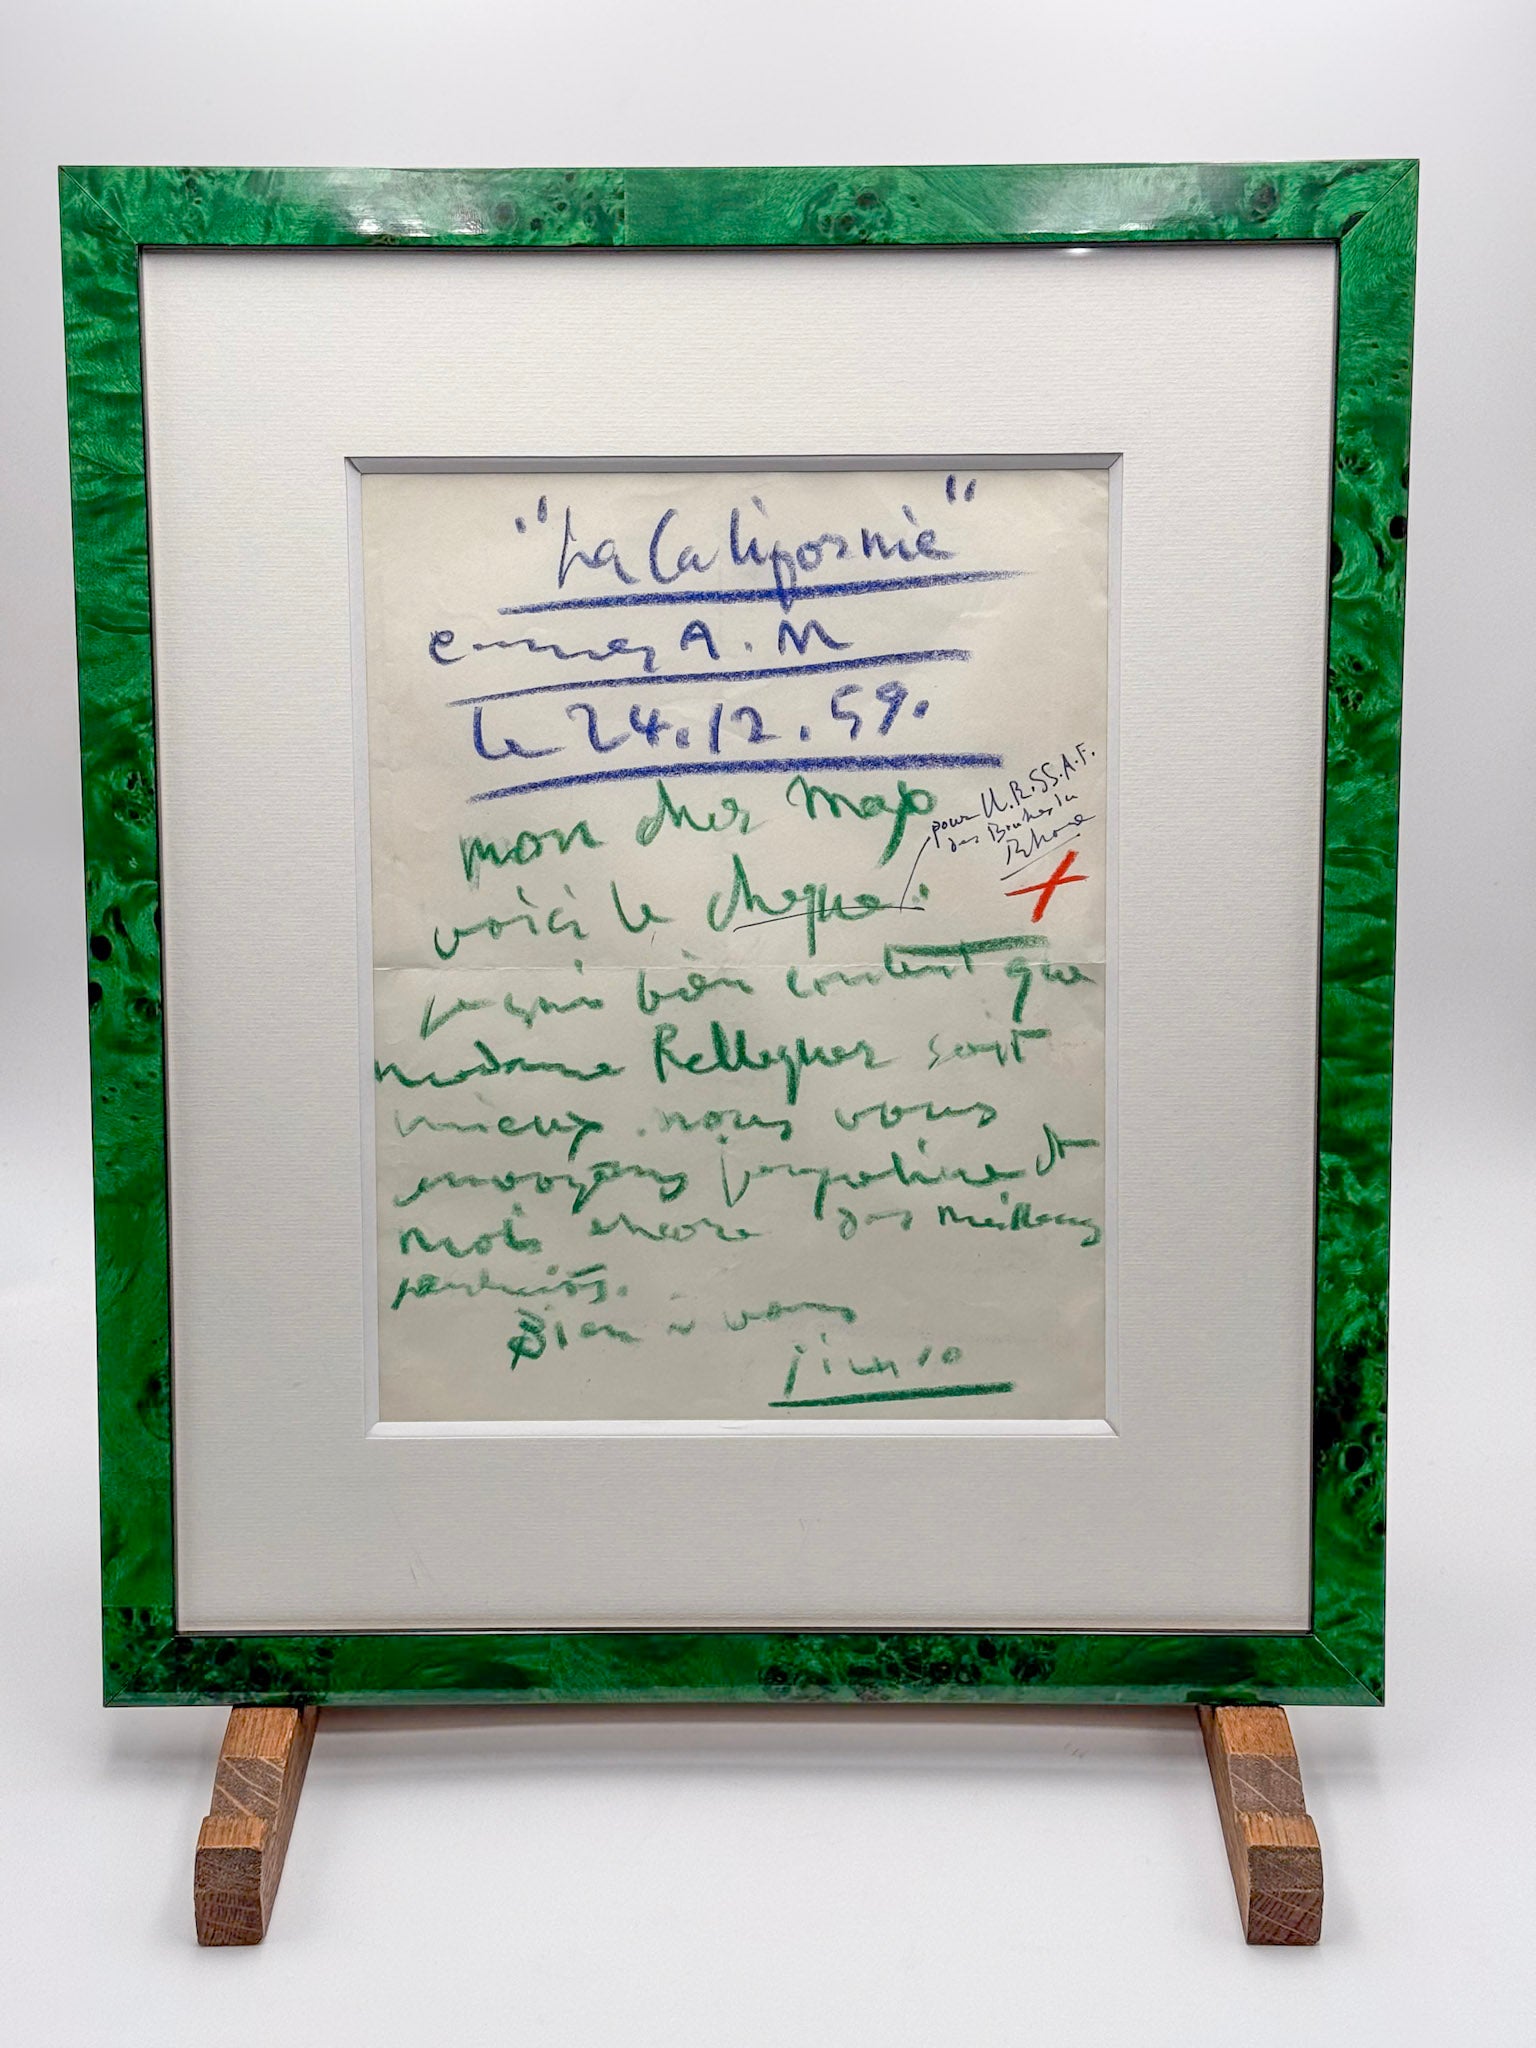 "La Californie"
Cannes A.M
le 24.12.59.
mon cher
voici le cheque.
pour U.R.SS.A.F.
des Bouches du
Rhone
je suis bien content que
madame Pellequer soit
mieux nous vous
envoyons jacqueline et
moi encore des meilleurs
souhaits.
Bien à vous
Picasso